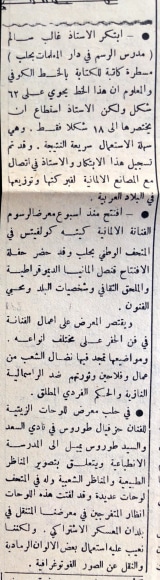 ● ابتكر الاستاذ غالب سالم
( مدرس الرسم في دار المعلمات بحلب )
مسطرة كاتبة للكتابة بالخط الكوفي
والمعلوم ان هذا الخط يحوي على ٦٢
شكل ولكن الاستاذ استطاع ان
يختصرها الى ١٨ شكلا فقط . وهي
سهلة الاستعمال سريعة النتيجة . وقد تم
تسجيل هذا الابتكار والاستاذ في اتصال
مع المصانع الالمانية لفبركتها وتوزيعها
في البلاد العربية .
● افتتح منذ اسبوع معرض الرسوم
الفنانة الالمانية كيته كولفيتس في
المتحف الوطني بحلب وقد حضر حفلة
الافتتاح قنصل المانيا الديموقراطية
والملحق الثقافي وشخصيات البلد ومحبي
الفنون .
ويقتصر المعرض على اعمال الفنانة
في فن الحفر على مختلف انواعه .
ومواضيعها تمجد فيها نضال الشعب من
عمال وفلاحين وثورتهم ضد الراسمالية
النازية والحكم الفردي المطلق .
● في حلب معرض للوحات الزيتية
للفنان حزقيال طوروس في نادي السعد
والسيد طوروس يميل الى المدرسة
الانطباعية ويتعلق بتصوير المناظر
الطبيعية والمناظر الشعبية وله في المتحف
لوحات عديدة وقد لفتت هذه اللوحات
انظار المتفرجين في معرضنا المتنقل في
بلدان المعسكر الاشتراكي . ولكننا
نعيب عليه استعمال بعض الالوان الرمادية
والنقل عن الصور الفوتوغرافية .